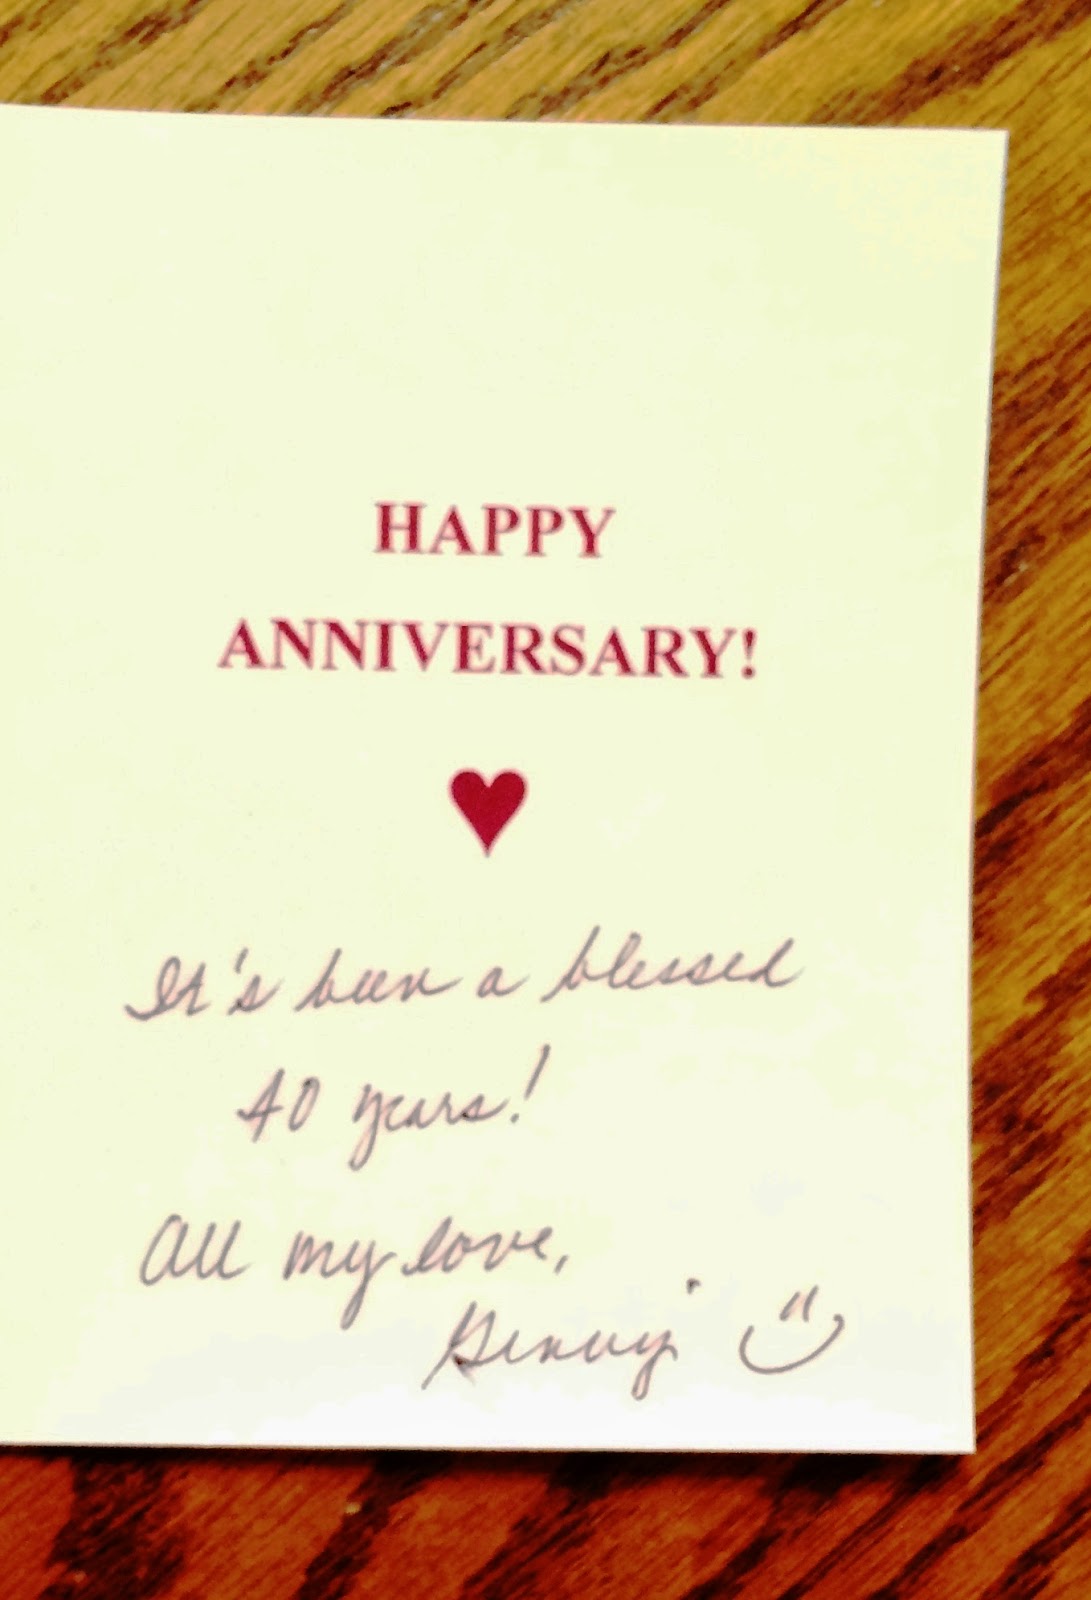 HAPPY
ANNIVERSARY!
It's been a blessed
40 years!
All my love,